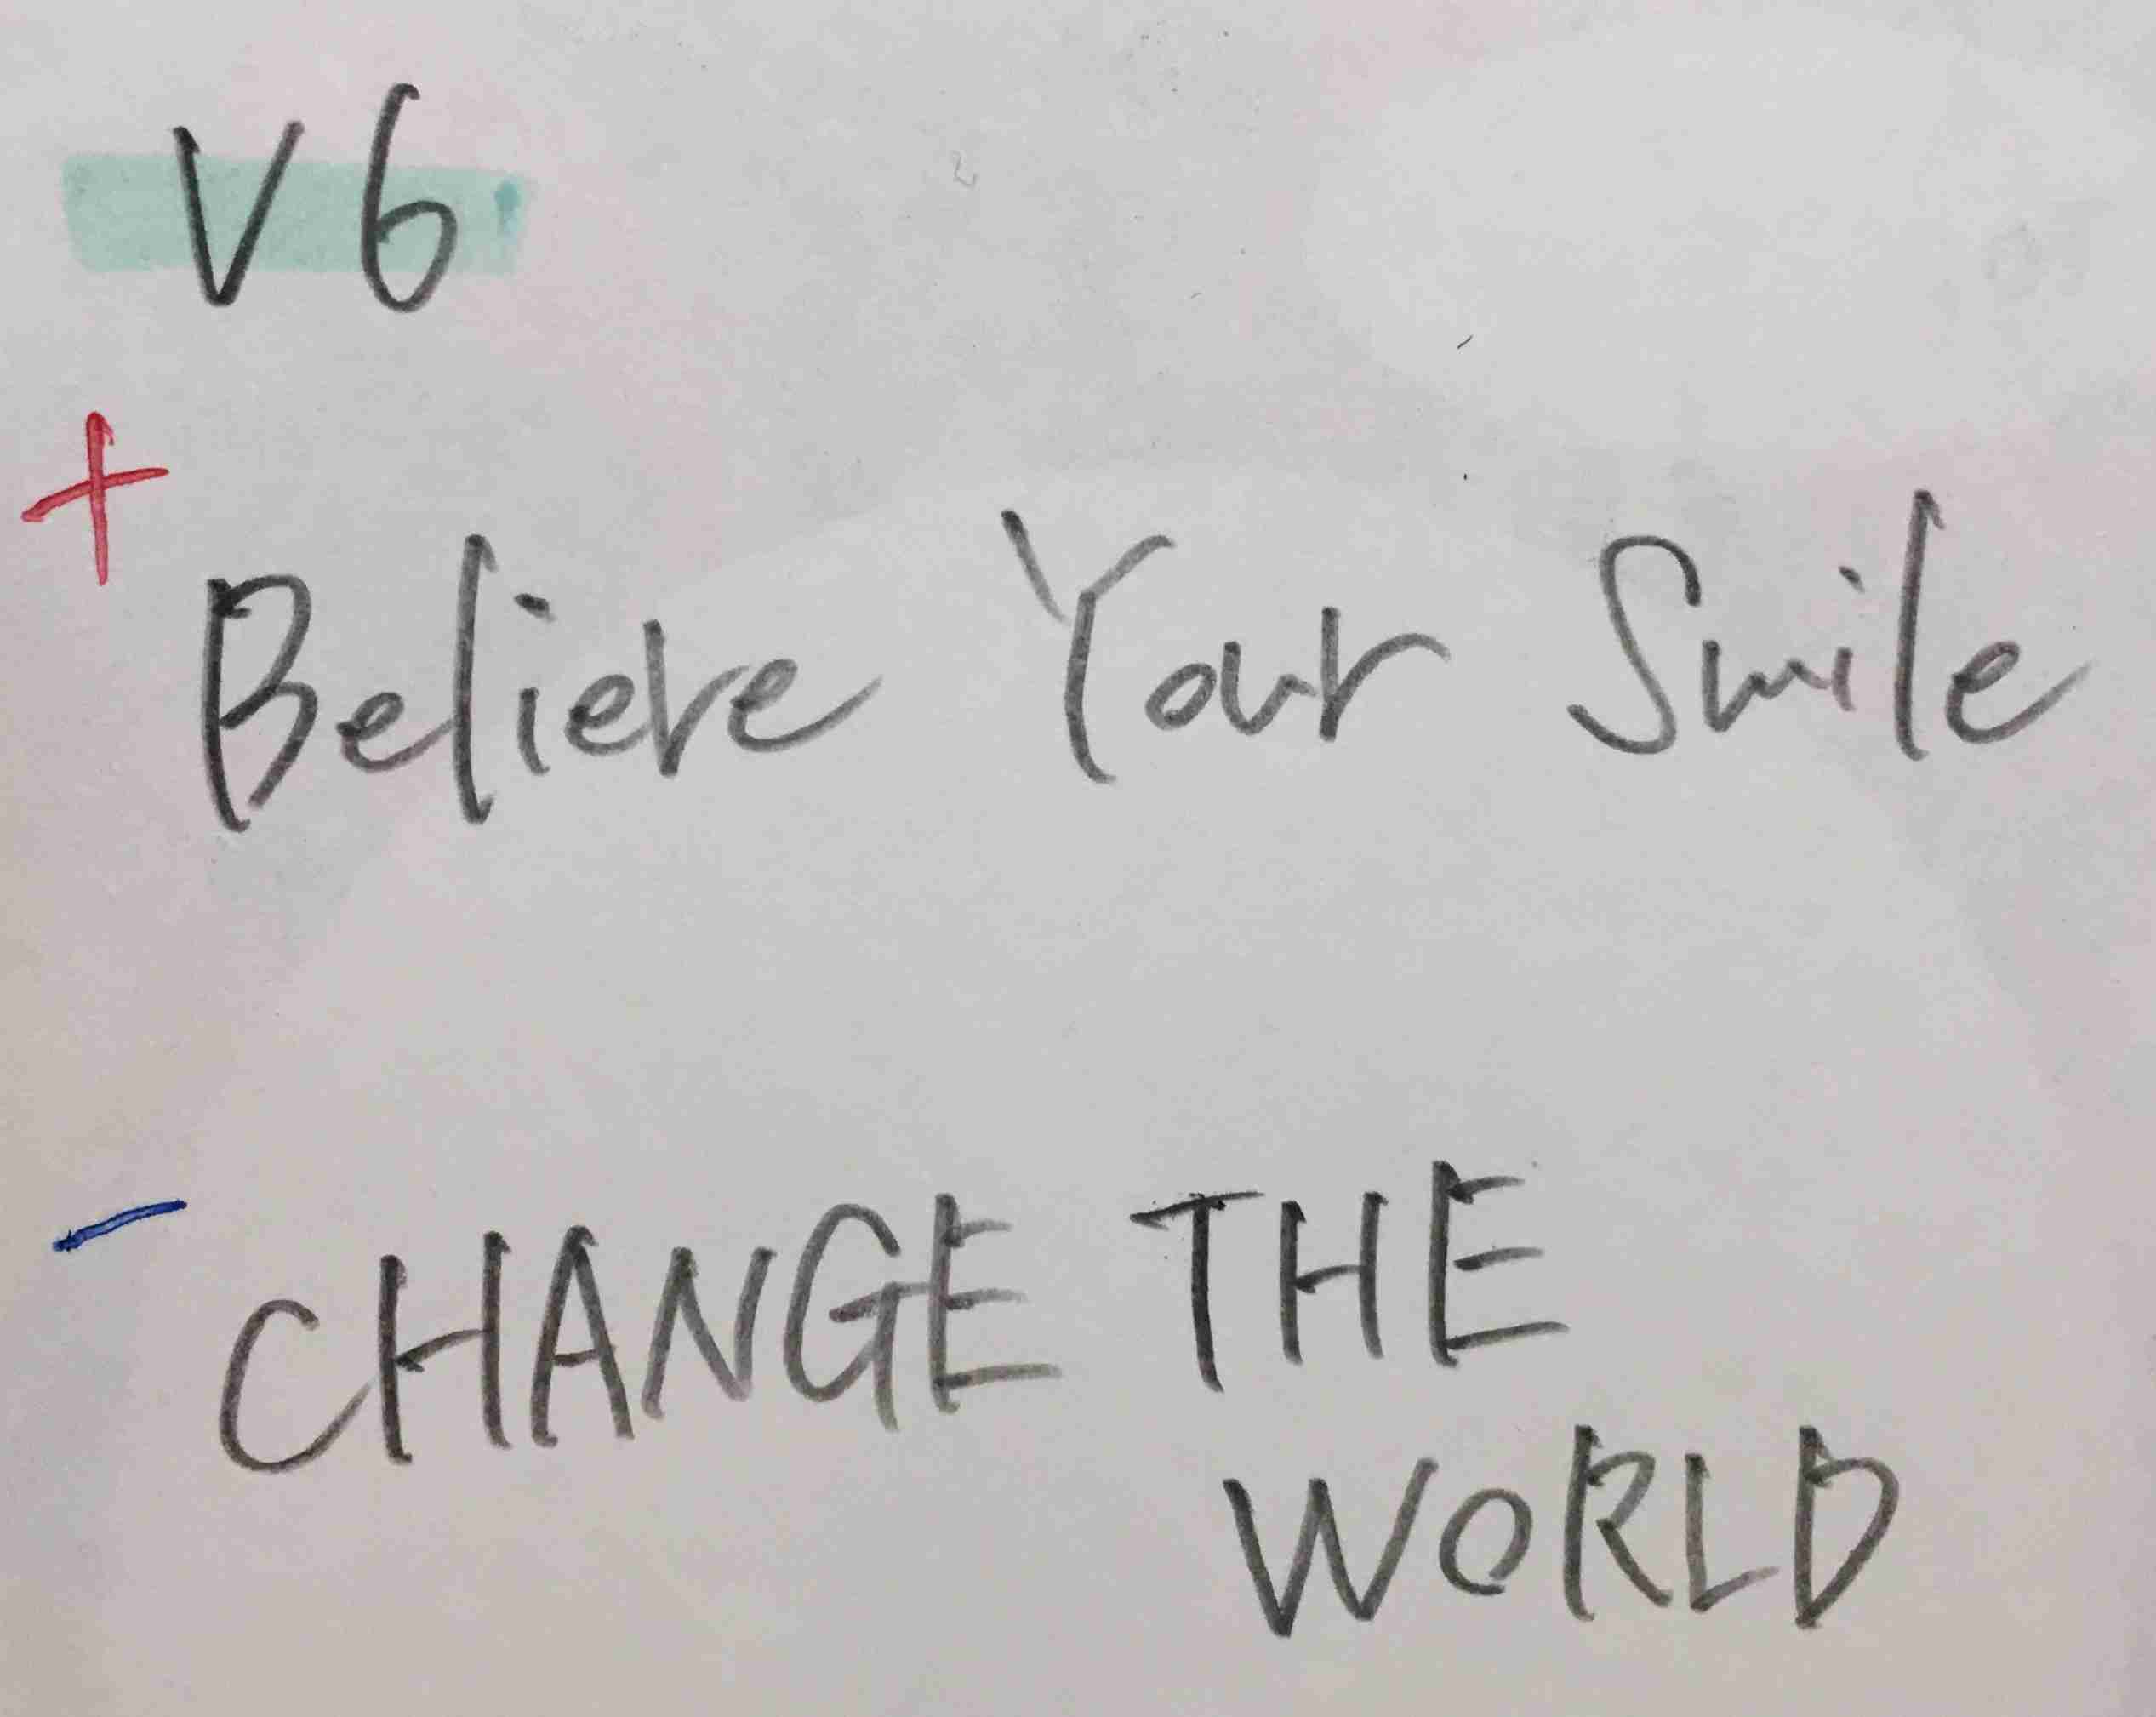 V6
+
Believe Your Smile
-
CHANGE THE
WORLD